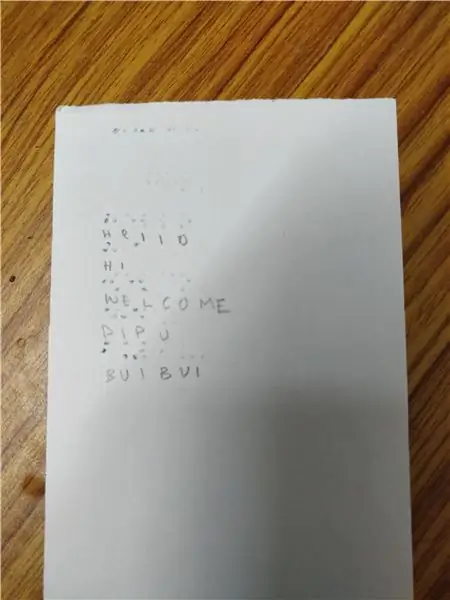 HellO
HI
WELCOME
PIPU
BUI BUI